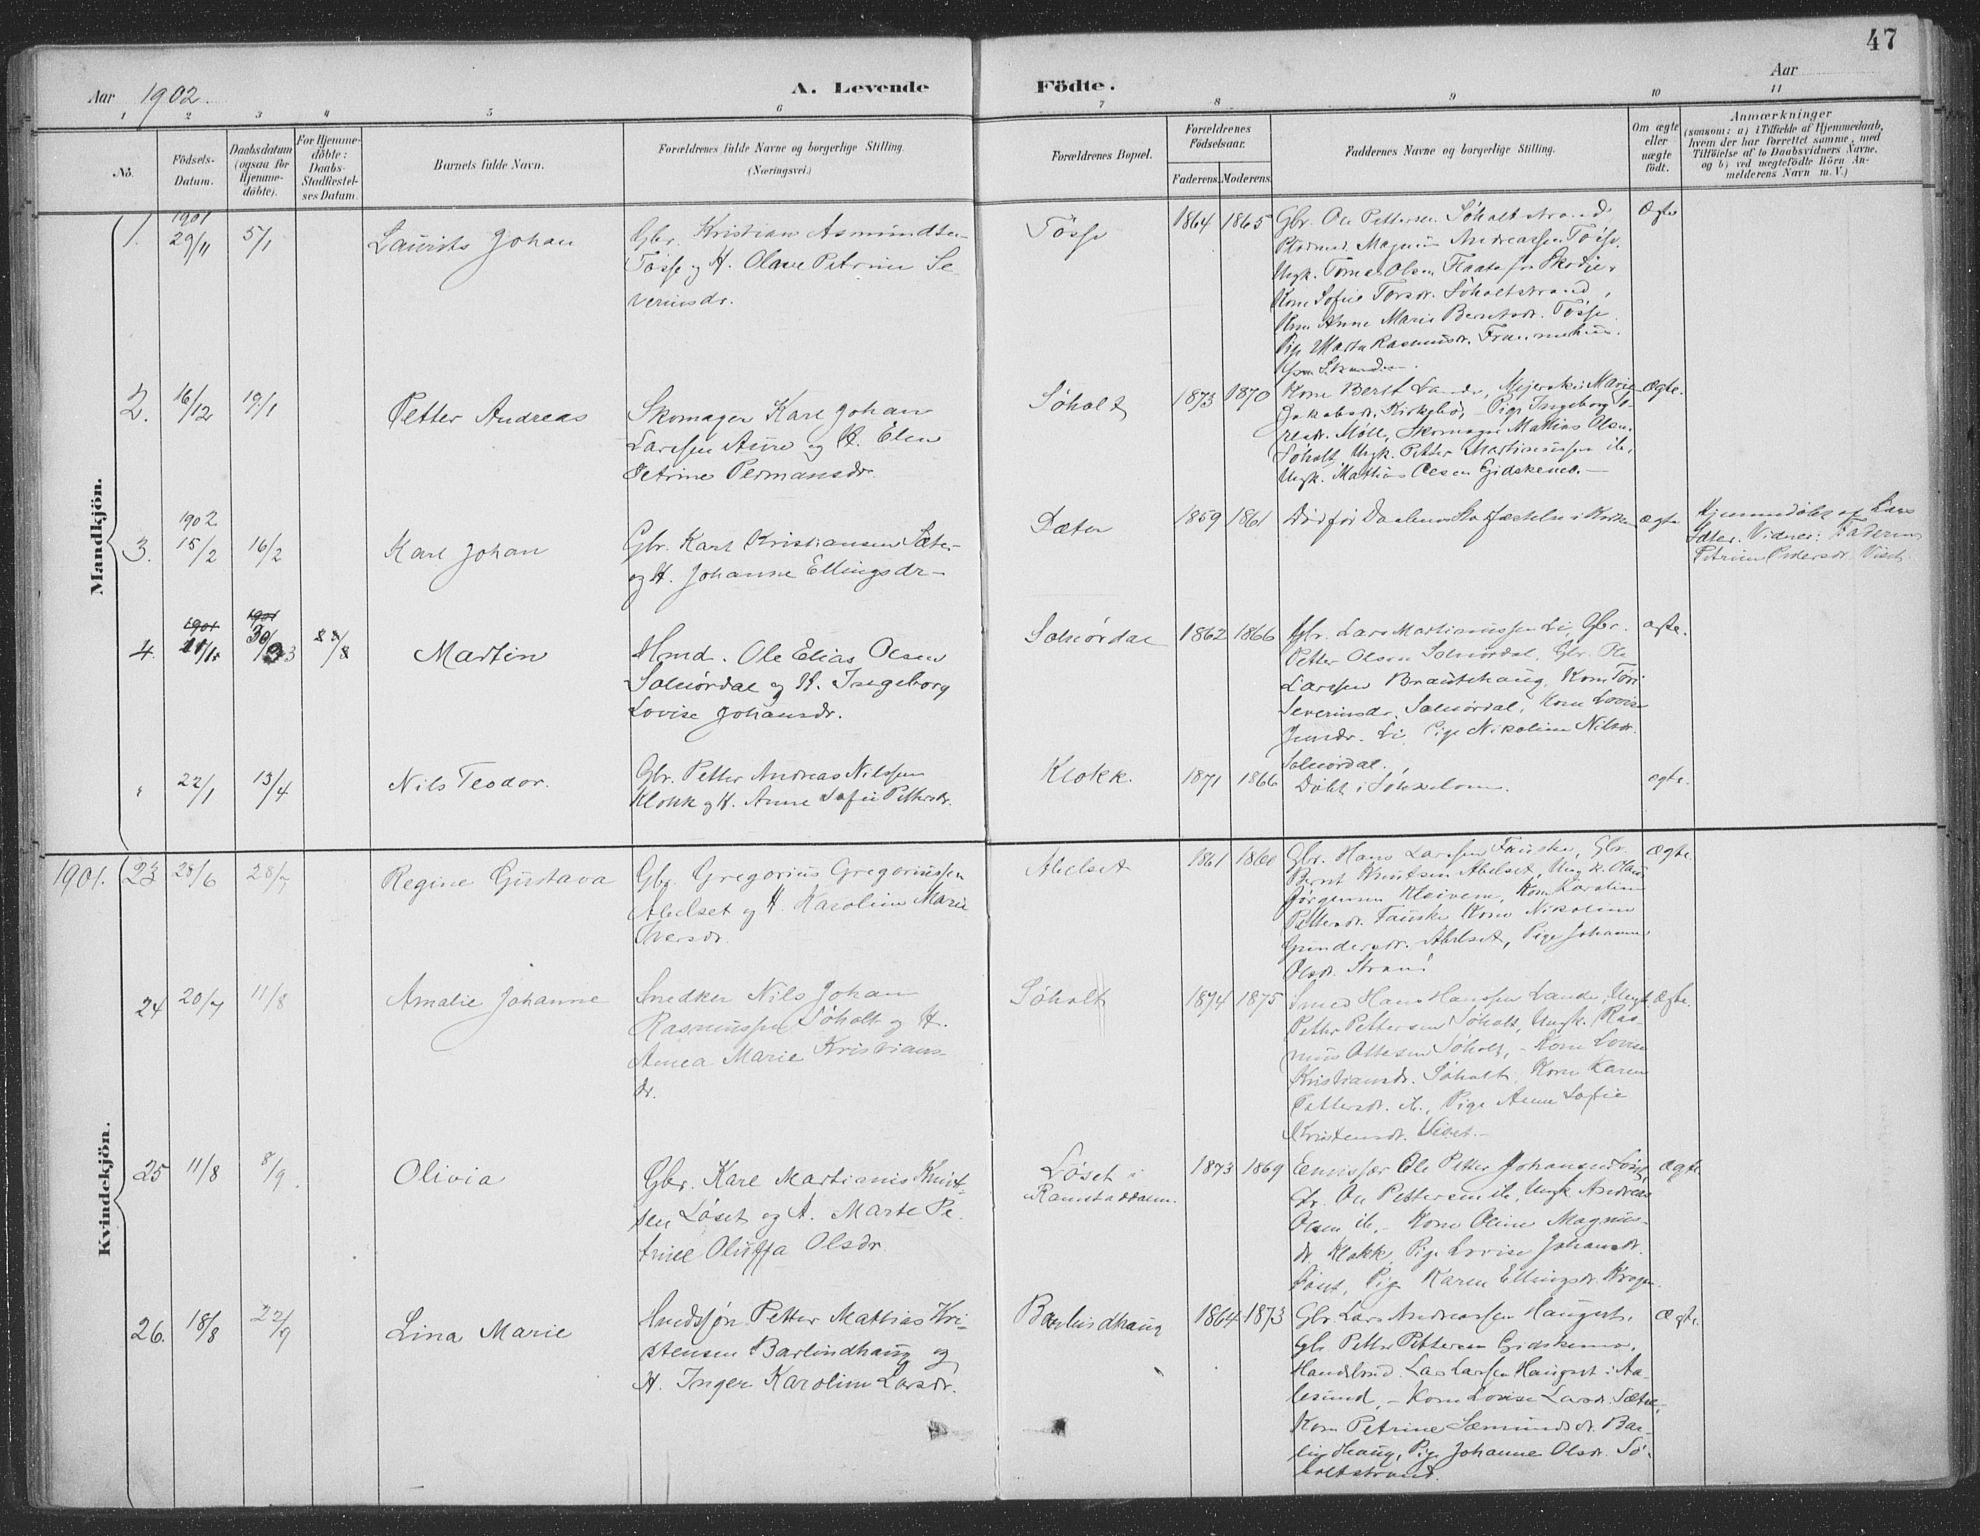 47
Aar 1902.
A. Levende Födte.
Aar
1 2 3 4 5 6 7 8 9 10 11
No.
Födsels-
Datum.
Daabsdatum
(ogsaa for
Hjemme-
döbte).
For Hjemme-
döbte:
Daabs-
Stadfæstel-
ses Datum.
Barnets fulde Navn.
Forældrenes fulde Navne og borgerlige Stilling.
(Næringsvei.)
Forældrenes Bopæl.
Forældrenes
Födselsaar.
Faderens. Moderens.
Faddernes Navne og borgerlige Stilling.
Om ægte
eller
uægte
födt.
Anmærkninger
(saasom: a) i Tilfælde af Hjemmedaab,
hvem der har forrettet samme, med
Tilföielse af to Daabsvidners Navne,
og b) ved uægtefödte Börn An-
melderens Navn m. V.)
Mandkjön.
1. 1901 29/11 5/1 Laurits Johan
Gbr. Kristian Asmundsen
Tösse og H. Olave Petrine Se-
verinsdr.
Tösse 1864 1865
Gbr. Ole Pettersen Söholtstrand,
Magnus Andreassen Tösse,
Ungk. Tomas Olsen Flaate fra Skodje,
Kone Sofie Larsdr. Söholtstrand,
Kone Anne Marie Berntsdr. Tösse,
Pige Marta Rasmusdr.
Ægte
2. 16/12 19/1 Petter Andreas
Skomager Karl Johan
Larssen Aure og H. Elen
Petrine Permansdr.
Söholt 1873 1870
Kone Berit Lande, Mejerske Marie
Jakobsdr. Kirkebö, - Pige Ingeborg
Möll, Skomager Mathias Olsen
Söholt, Ungk. Petter Martinussen ib.,
Ungk. Mathias Olsen Gidskemo. -
Ægte.
3. 1902 15/2 16/2 Karl Johan
Gbr. Karl Kristiansen Sæter
og H. Johanne Ellingsdr -
Sæter 1859 1861
Död för Daabens Stadfæstelse i Kirken
ægte
Hjemmedöbt af Lars
Sæter. Vidner: Faderen,
Petrine Pedersdr. Viset.
4. 1901 11/1 1901 30/3 3/8 Martin
Hmd. Ole Elias Olsen
Solnördal og H. Ingeborg
Lovise Johansdr.
Solnördal 1862 1866
Gbr. Lars Martinussen Li, Gbr.
Petter Olsen Solnördal, Gbr. Ole
Larssen Brautehaug, Kone
Severinsdr. Solnördal, Kone Lovise
Jensdr. Li, Pige Nikoline Nilsdr.
Solnördal.
ægte.
" 22/1 13/4 Nils Teodor.
Gbr. Petter Andreas Nilssen
Klokk og H. Anne Sofie Pettersdr.
Klokk. 1871 1866
Döbt i
ægte.
Kvindekjön.
1901. 23 28/6 28/7 Regine Gustava
Gbr. Gregorius Gregoriussen
Abelset og H. Karoline Marie
Iversdr.
Abelset 1861 1860
Gbr. Hans Larssen Fauske, Gbr.
Bernt Knutsen Abelset, Ungk. Olaus
Jörgensen Kleiven, Kone Karoline
Pettersdr. Fauske, Kone Nikoline
Gundersdr. Abelset, Pige Johanne
Olsdr. Strand
Ægte
24 20/7 11/8 Amalie Johanne
Snedker Nils Johan
Rasmussen Söholt og H.
Anna Marie Kristians-
dr.
Söholt 1874 1875
Smed Hans Hanssen Lande, Ungk.
Petter Pettersen Söholt, Ungk. Ras-
mus Ottesen Söholt, - Kone Lovise
Kristiansdr. Söholt, Kone Karen
Pettersdr. ib., Pige Anne Sofie
Kristensdr. Viset. -
Ægte.
25 11/8 8/9. Olivia
Gbr. Karl Martinus Knut-
sen Löset og H. Marte Pe-
trine Oluffa Olsdr.
Löset i
Ramstaddalen.
1873 1869
Emissær Ole Petter Johansen Löset,
Gr. Ole Pettersen ib., Ungk. Andreas
Olsen ib., - Kone Oline Magnus-
dr. Klokk, Pige Lovise Johansdr.
Löset, Pige Karen Ellingsdr.
Ægte
26. 18/8 22/9 Lina Marie
Hmdssön Petter Mathias Kri-
stensen Barlindhaug og
H. Inger Karoline Larsdr.
Barlindhaug 1864 1873
Gbr. Lars Andreassen Haugset,
Gbr. Petter Pettersen Gidskemo,
Handelsmd. Lars Larsen Haugset i Aa-
lesund, - Kone Lovise Larsdr. Sætre,
Kone Petrine Sæmundsdr. Bar-
lindhaug, Pige Johanne Olsdr. Sö-
holtstrand
Ægte.